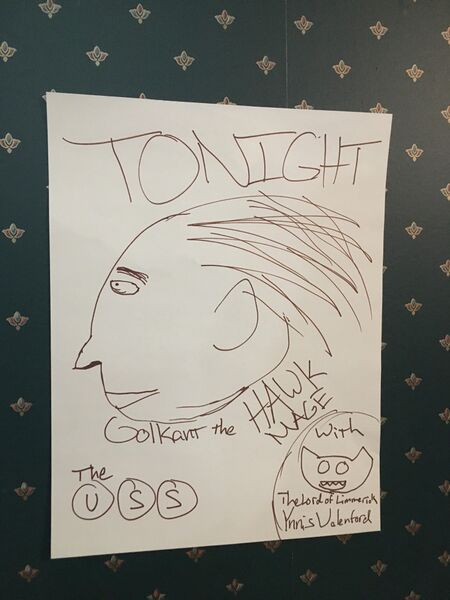 TONIGHT
Golkant the HAWK
MAGE
With
The Lord of Limmerick
Ynnis Valenford
The
USS